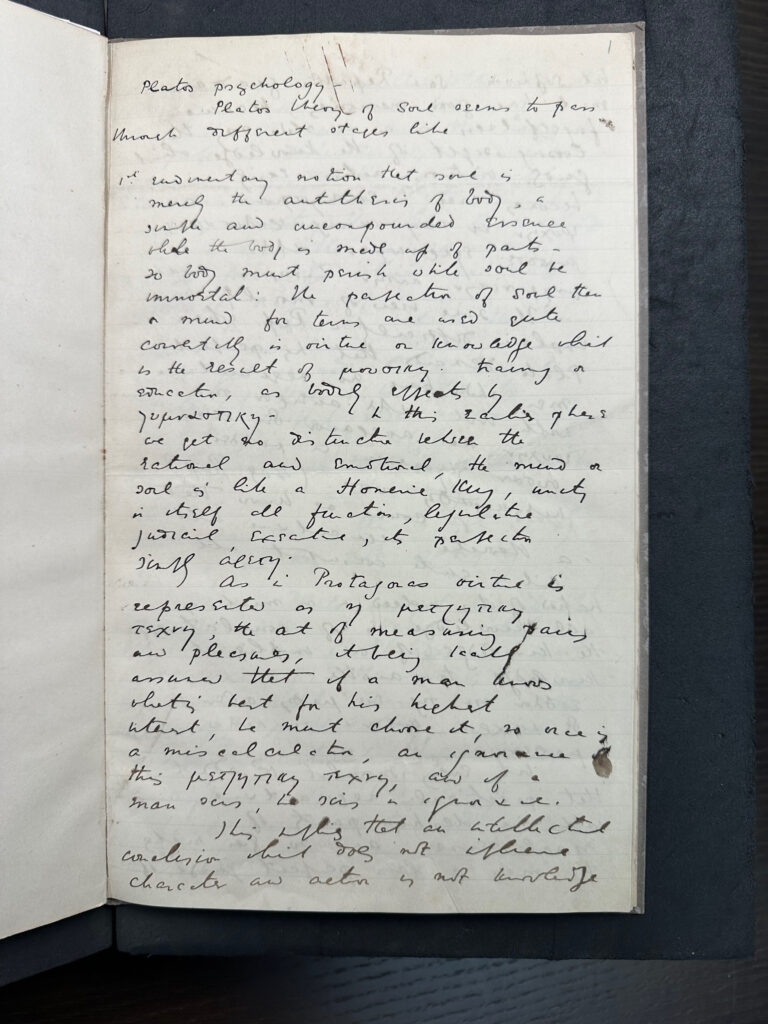 1
Platos psychology –
Platos theory of Soul seems to pass
through different stages like
1st rudimentary notion that soul is
merely the antithesis of body, a
simple and uncompounded essence
while the body is made up of parts –
so body must perish while soul be
immortal: the perfection of soul then
or mind for terms are used quite
convertibly is virtue or knowledge which
is the result of μουσικη. training or
education, as bodily effects by
γυμναστικη – In this earlier phase
we get no distinction between the
rational and emotional, the mind or
soul is like a Homeric King, unity
in itself all functions, legislative
judicial executive, its perfection
simply άρετη.
As in Protagoras virtue is
represented as η μετρητικη
τεχνη, the art of measuring pains
and pleasures, it being
assumed that if a man knows
what is best for his highest
interest, he must choose it, so vice is
a miscalculation, an ignorance of
this μετρητικη τεχνη, and if a
man sins, he sins in ignorance.
This implies that an intellectual
conclusion which does not influence
character and action is not knowledge